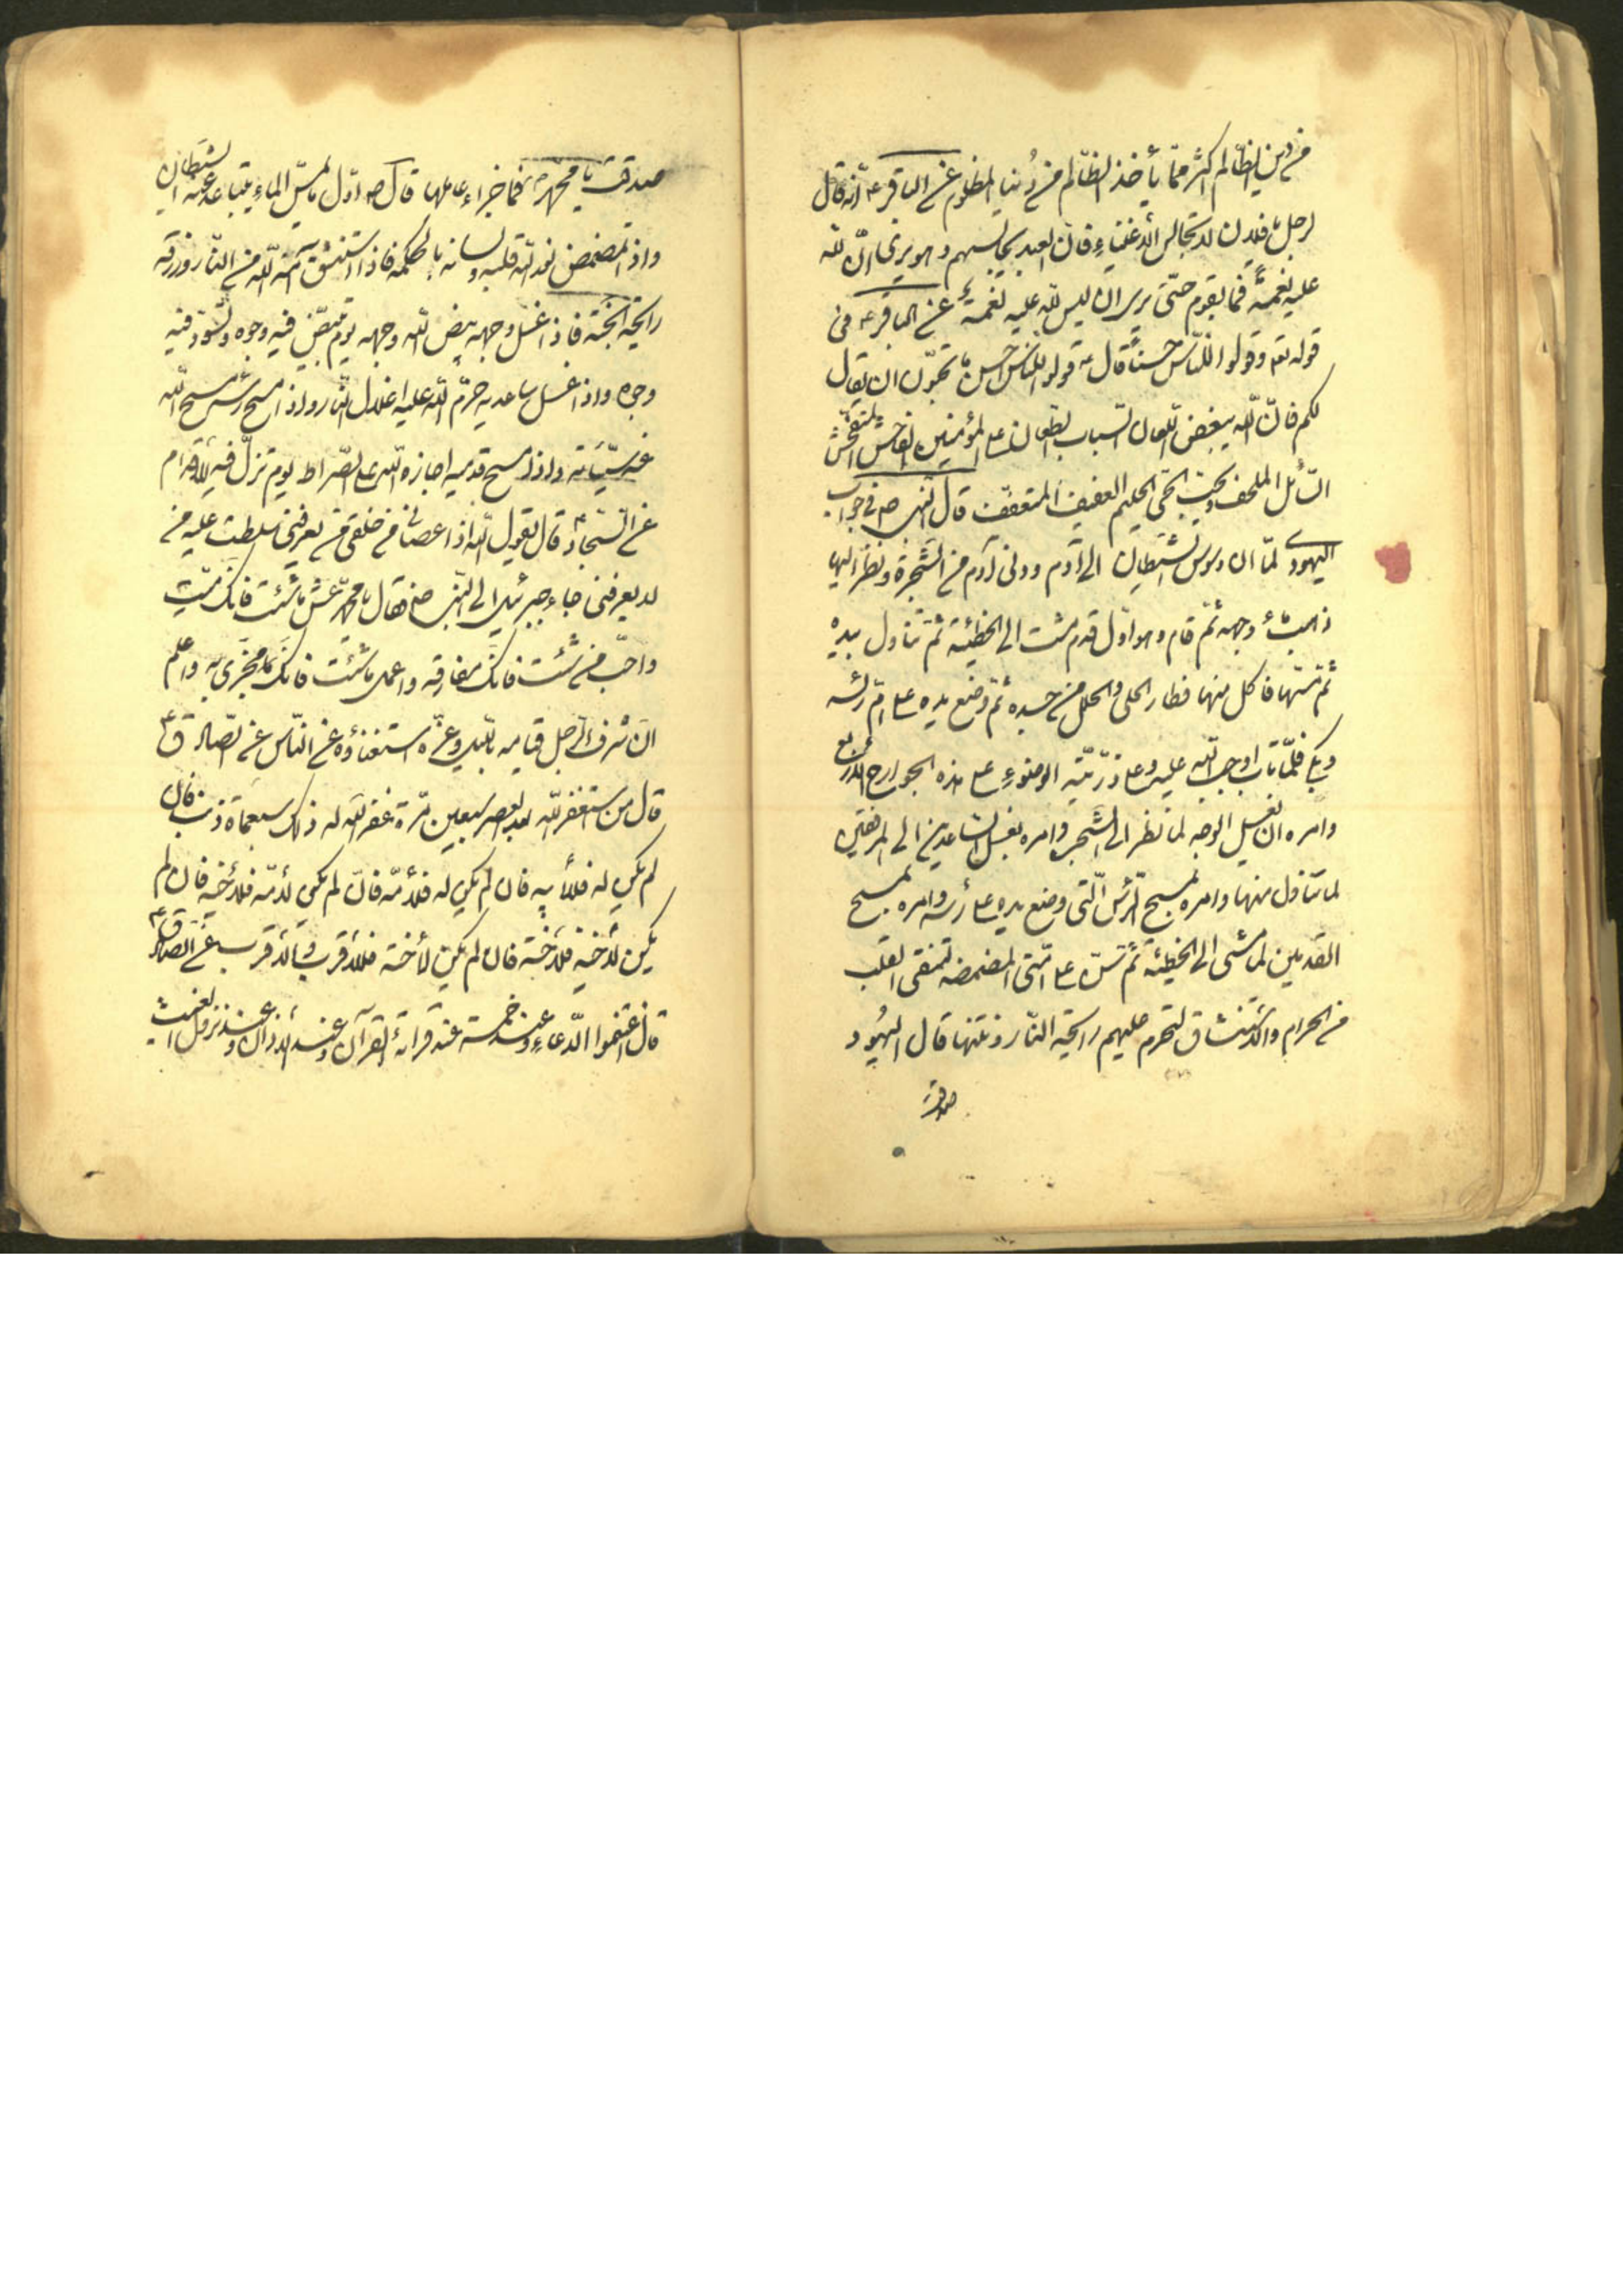 من دين الظالم اكثر مما يأخذ الظالم من دنيا المظلوم عن الباقر ع انه قال
لرجل يا فلان لا تجالس الاغنياء فان العبد يجالسهم و هو يرى ان لله
عليه نعمة فما يقوم حتى يرى ان ليس لله عليه نعمة عن الباقر ع فى
قوله تع وقولوا للناس حسنا قال ع قولوا للناس احسن ما تحبون ان يقال
لكم فان الله يبغض اللعان السباب الطعان على المؤمنين الفاحش المتفحش
السائل الملحف ويحب الحيى الحليم العفيف المتعفف قال النبى ص فى جواب
اليهود لما ان وسوس الشيطان الى آدم ودنى آدم من الشجرة ونظر اليها
ذهب ماء وجهه ثم قام وهو اول قدم مشت الى الخطيئة ثم تناول بيده
ثم مسها فاكل منها فطار الحلى والحلل من جسده ثم وضع يده على ام رأسه
وبكى فلما تاب اوجب الله عليه وعلى ذريته الوضوء على هذه الجوارح الاربع
وامره ان يغسل الوجه لما نظر الى الشجر وامره بغسل الساعدين الى المرفقين
لما تناول منها وامره بمسح الرأس التى وضع يده على رأسه وامره بمسح
القدمين لما مشى الى الخطيئة ثم سن على امتى المضمضه لتنقى القلب
من الحرام والاستنشاق لتحرم عليهم رايحة النار ونتنها قال اليهود
صدقت
صدقت يا محمد ص فما جزاء عاملها قال ص اول ما يمس الماء يتباعد عنه الشيطان
واذا تمضمض نور الله قلبه ولسانه بالحكمة فاذا استنشق آمنه الله من النار ورزقه
رايحة الجنة فاذا غسل وجهه بيض الله وجهه يوم تبيض فيه وجوه وتسود فيه
وجوه واذا غسل ساعديه حرم الله عليه اغلال النار واذا مسح رأسه مسح الله
عنه سيئاته واذا مسح قدميه اجازه الله على الصراط يوم تزل فيه الاقدام
عن السجاد ع قال يقول الله اذا عصانى من خلقى من يعرفنى سلطت عليه من
لا يعرفنى جاء جبرئيل الى النبى ص فقال يا محمد عش ما شئت فانك ميت
واحب من شئت فانك مفارقه واعمل ما شئت فانك مجزى به واعلم
ان شرف الرجل قيامه بالليل وعزه استغناؤه عن الناس عن الصادق ع
قال من استغفر الله بعد العصر سبعين مرة غفر الله له ذلك سبعماة ذنب فان
لم يكن له فلأبيه فان لم يكن له فلأمه فان لم يكن لأمه فلأخيه فان لم
يكن لأخيه فلأخته فان لم يكن لأخته فللأقرب والأقرب عن الصادق ع
قال اغتنموا الدعاء عند خمسة عند قرائة القرآن وعند الاذان وعند نزول الغيث